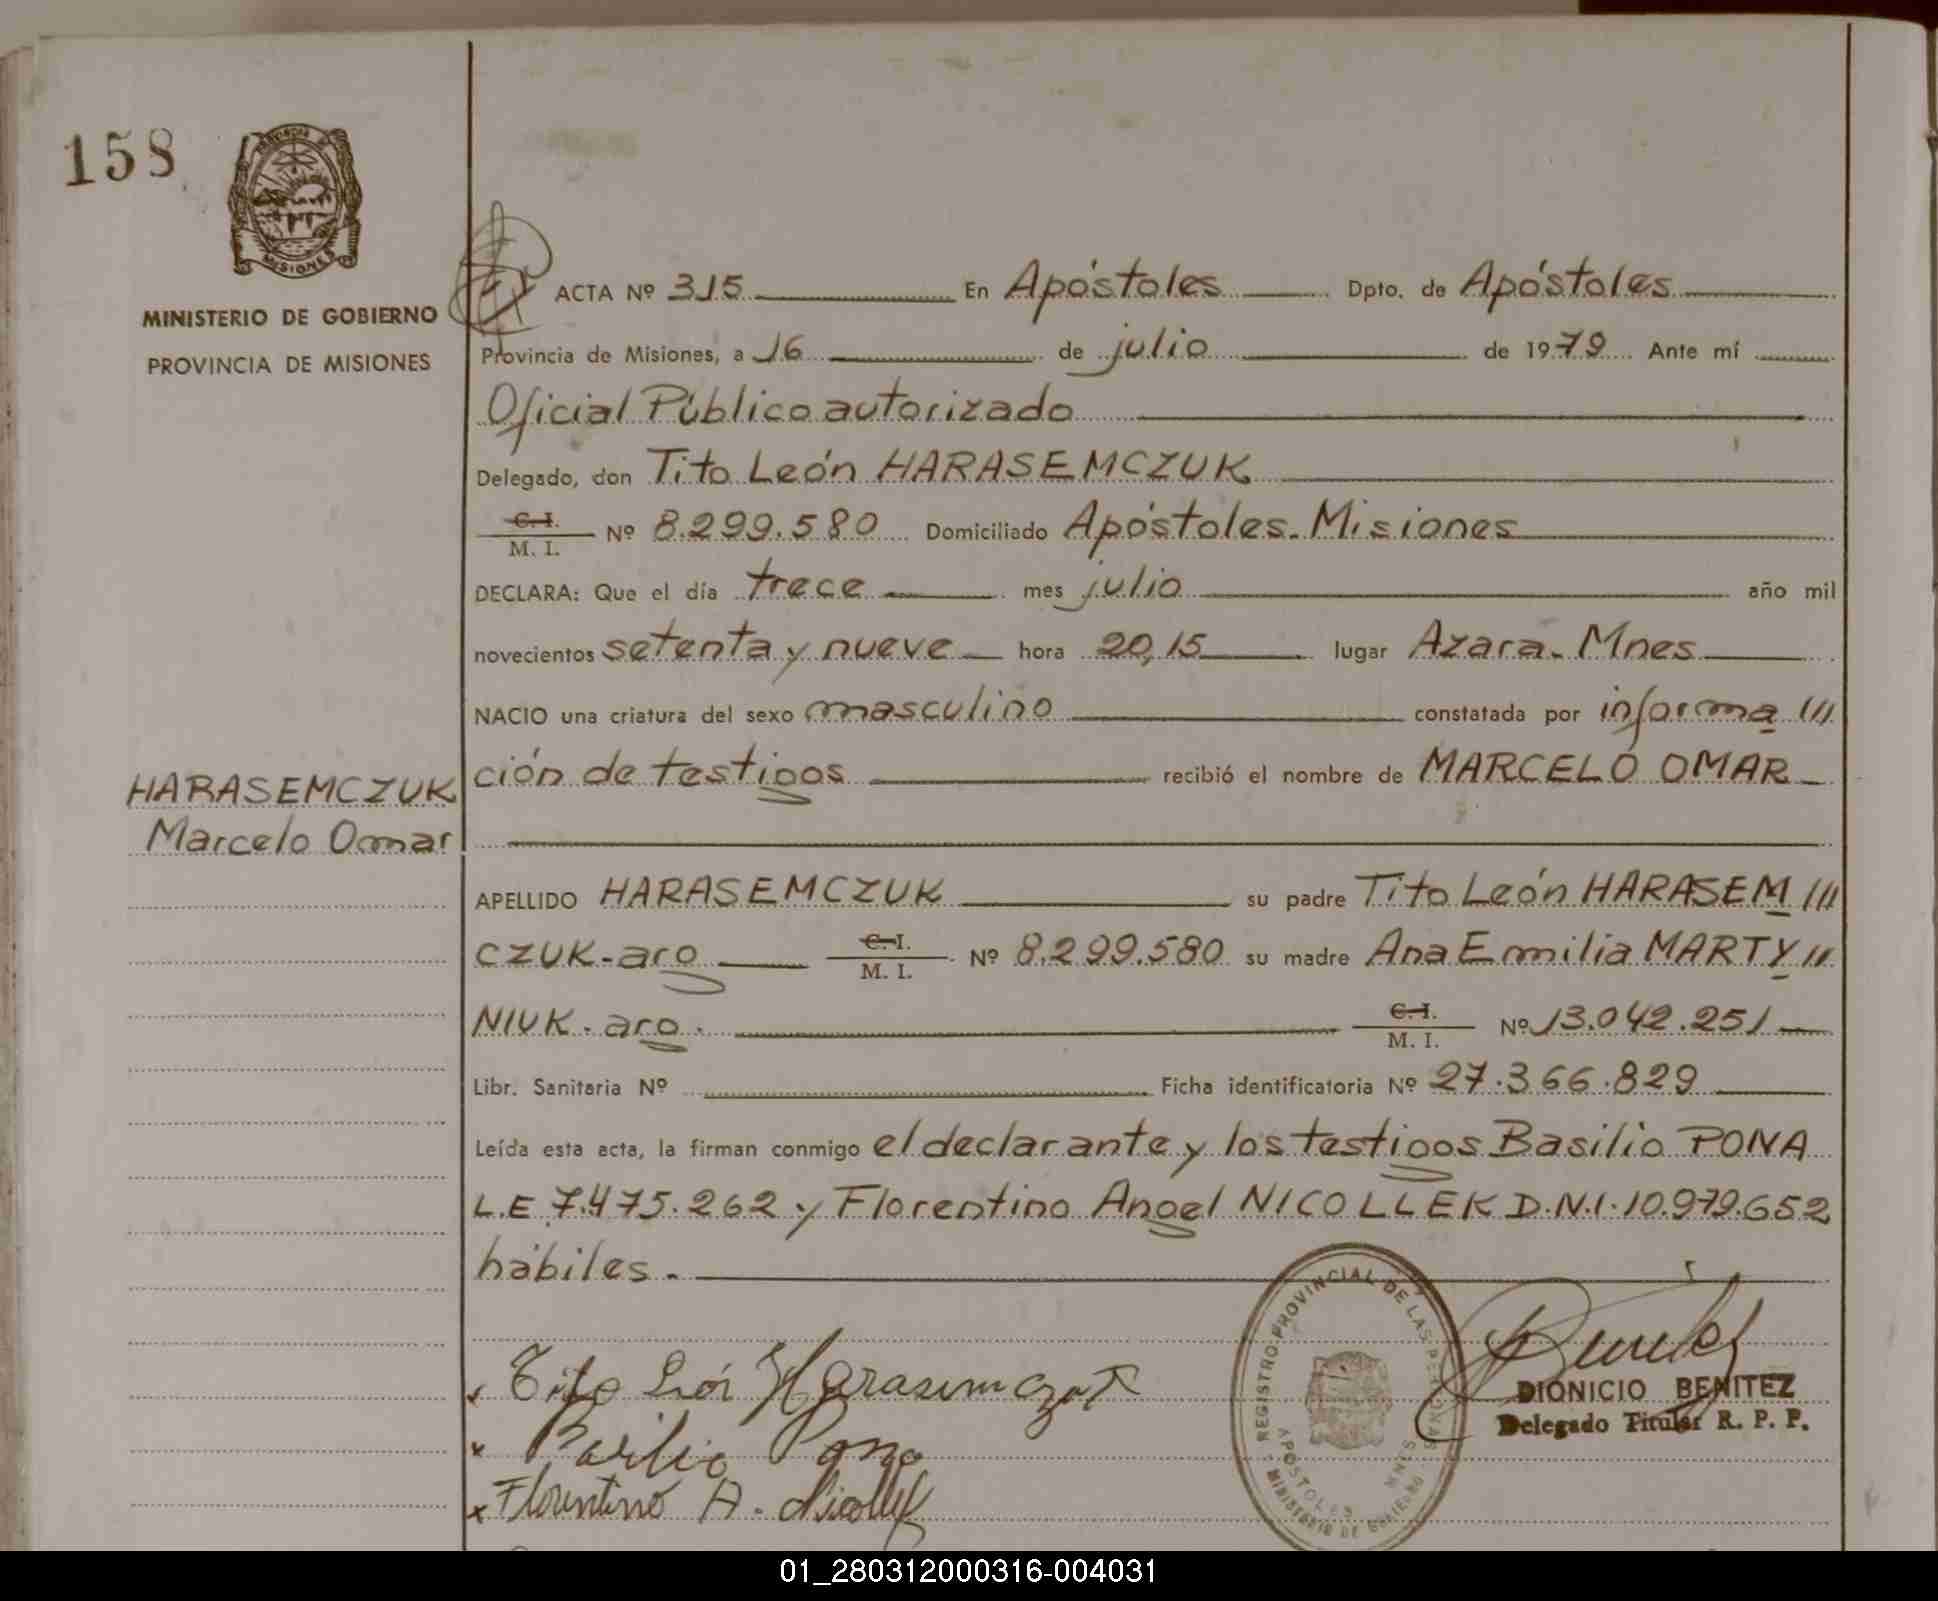 158
PROVINCIA DE
MISIONES
MINISTERIO DE GOBIERNO
PROVINCIA DE MISIONES
ACTA Nº 315 En Apóstoles Dpto. de Apóstoles
Provincia de Misiones, a 16 de julio de 1979 Ante mí
Oficial Público autorizado
Delegado, don Tito León HARASEMCZUK
C. I.
M. I. Nº 8.299.580 Domiciliado Apóstoles. Misiones
DECLARA: Que el día trece mes julio año mil
novecientos setenta y nueve hora 20,15 lugar Azara. Mnes
NACIO una criatura del sexo masculino constatada por informa ///
ción de testigos recibió el nombre de MARCELO OMAR
HARASEMCZUK
Marcelo Omar
APELLIDO HARASEMCZUK su padre Tito León HARASEM ///
CZUK-arg C. I.
M. I. Nº 8.299.580 su madre Ana Emilia MARTY //
NIUK. arg. C. I.
M. I. Nº 13.042.251
Libr. Sanitaria Nº Ficha identificatoria Nº 27.366.829
Leída esta acta, la firman conmigo el declarante y los testigos Basilio PONA
L.E 7.475.262 y Florentino Angel NICOLLEK D.N.I. 10.979.652
hábiles.
Tito León Harasemczuk
Basilio Pona
Florentino A. Nicollek
REGISTRO PROVINCIAL DE LAS PERSONAS
APOSTOLES MNES
MINISTERIO DE GOBIERNO
Benitez
DIONICIO BENITEZ
Delegado Titular R. P. P.
01_280312000316-004031